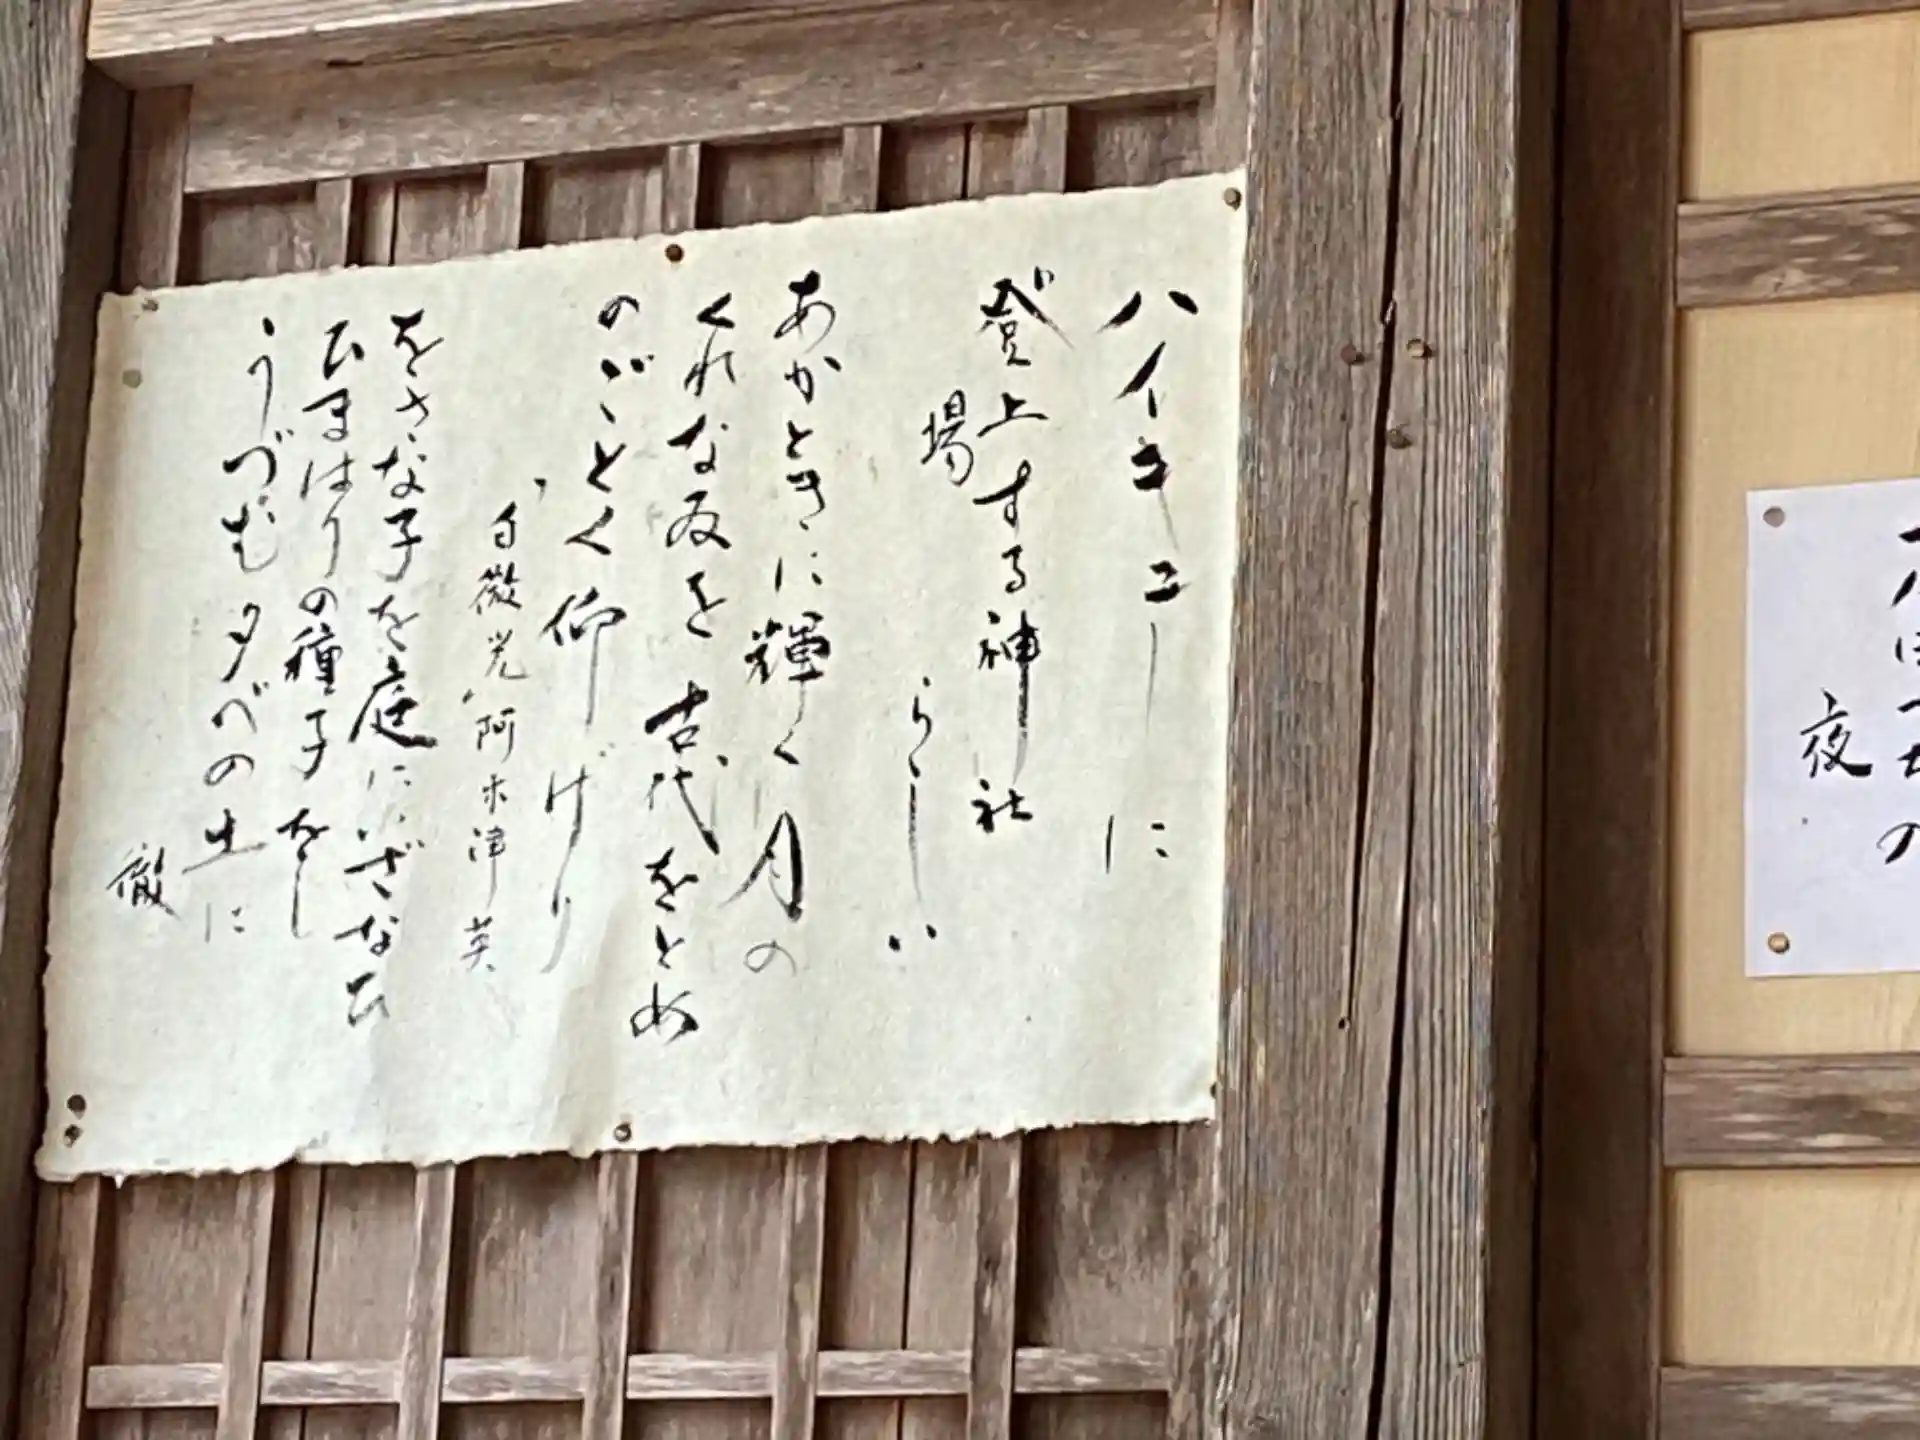 夜
ハイキューに
登上する神社
場
らしい
あかときに輝く月の
くれなゐを古代をとめ
のごとく仰げり
“白微光”阿木津英
をさな子を庭にいざなひ
ひまはりの種子をし
うづむ夕べの土に
徹